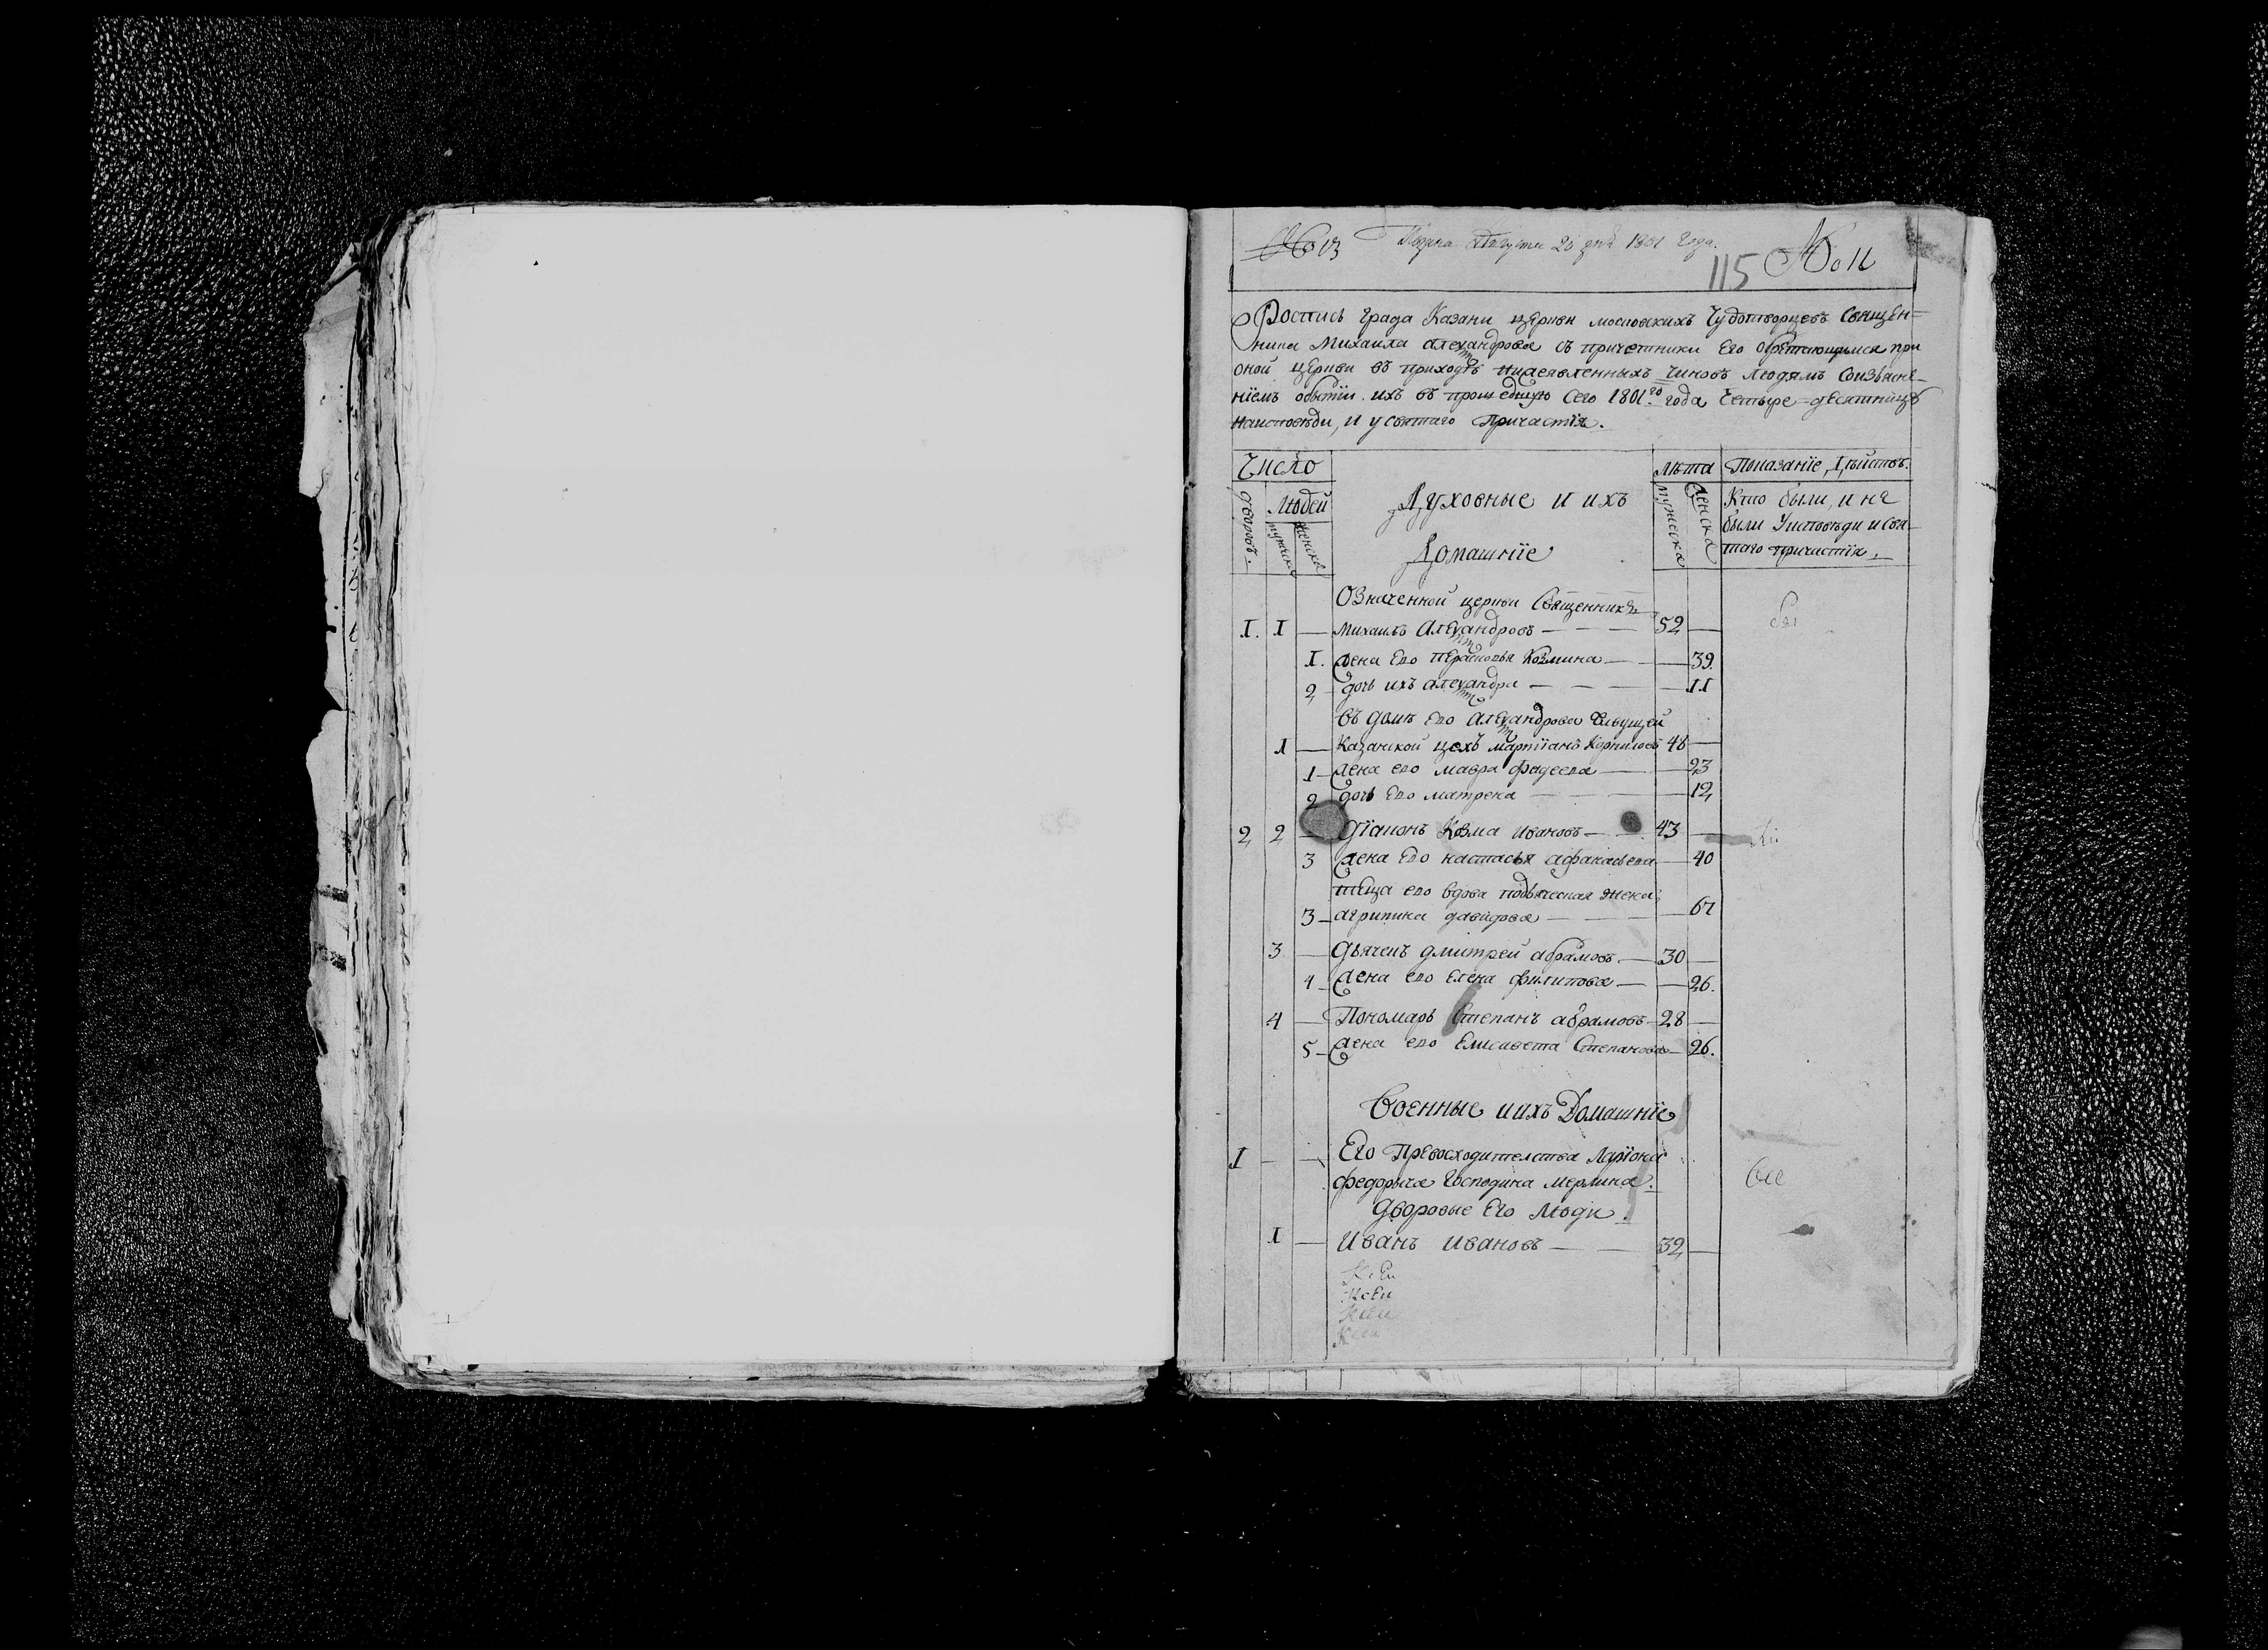 № 13 Подана Августа 20 дня 1801 года.
115 № 11
Роспись града Казани церкви московскихъ Чудотворцевъ Священ=
ника Михаила Александрова съ причетники Его обретающимся при
оной церкви въ приходѣ нижеявленныхъ чиновъ людямъ Соизъясне-
ніемъ обытіи ихъ въ прошедшую сего 1801го года Четыредесятницу
наисповѣди, и у святаго Причастія.
Число
Лѣта
Показаніе,
дворовъ.
Людей
мужеска
женска
Духовные и ихъ
Домашніе
мужеска
женска
Кто были, и не
были Уисповѣди и свя-
таго причастія.
Означенной церкви Священникъ
I. I — Михаилъ Александровъ — 52 —
I. жена Ево Перасковья Козмина — 39.
2 дочь ихъ александра — 11
въ домѣ Ево Александрова Живущей
1 — Казанской цехъ мартіанъ Корниловъ 48 —
1 — жена ево мавра фадеева — 23
2 дочь Ево матрена — 12
2 2 — Діаконъ Козма ивановъ — 43 —
3 жена Ево настасья афанасьева — 40
теща ево вдова подьяческая жена
3 — агрипина давидова — 67
3 — Дьячекъ дмитрей абрамовъ — 30 —
4 — жена ево Елена филипова — 26.
4 — Пономарь Степанъ абрамовъ — 28 —
5 — жена ево Елисавета Степанова — 26.
Военные иихъ Домашніе
I — — Его Превосходителства Ларіона
федорыча Господина мерлина.
дворовые Его люди.
Все
I — Иванъ Ивановъ — 32 —